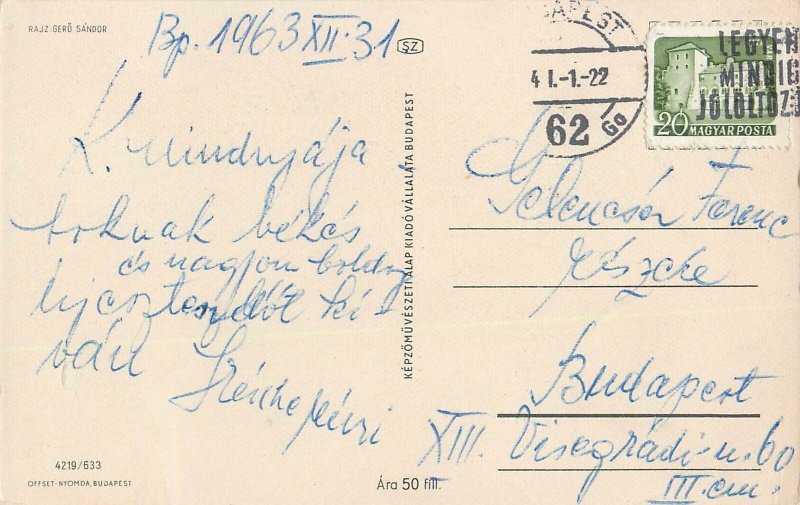 RAJZ: GERŐ SÁNDOR
Bp. 1963 XII. 31
SZ
K. mindnyája
toknak békés
és nagyon boldog
új esztendőt kí-
ván
4219/633
OFFSET-NYOMDA, BUDAPEST
KÉPZŐMŰVÉSZETI ALAP KIADÓ VÁLLALATA BUDAPEST
Ára 50 fill.
BUDAPEST
4 I.-1.-22
62
Ga
LEGYEN
MINDIG
JÓLÖLTÖZ
20 MAGYAR POSTA
Gelencsér Ferenc
részére
Budapest
XIII. Visegrádi-u. 60
III. em.